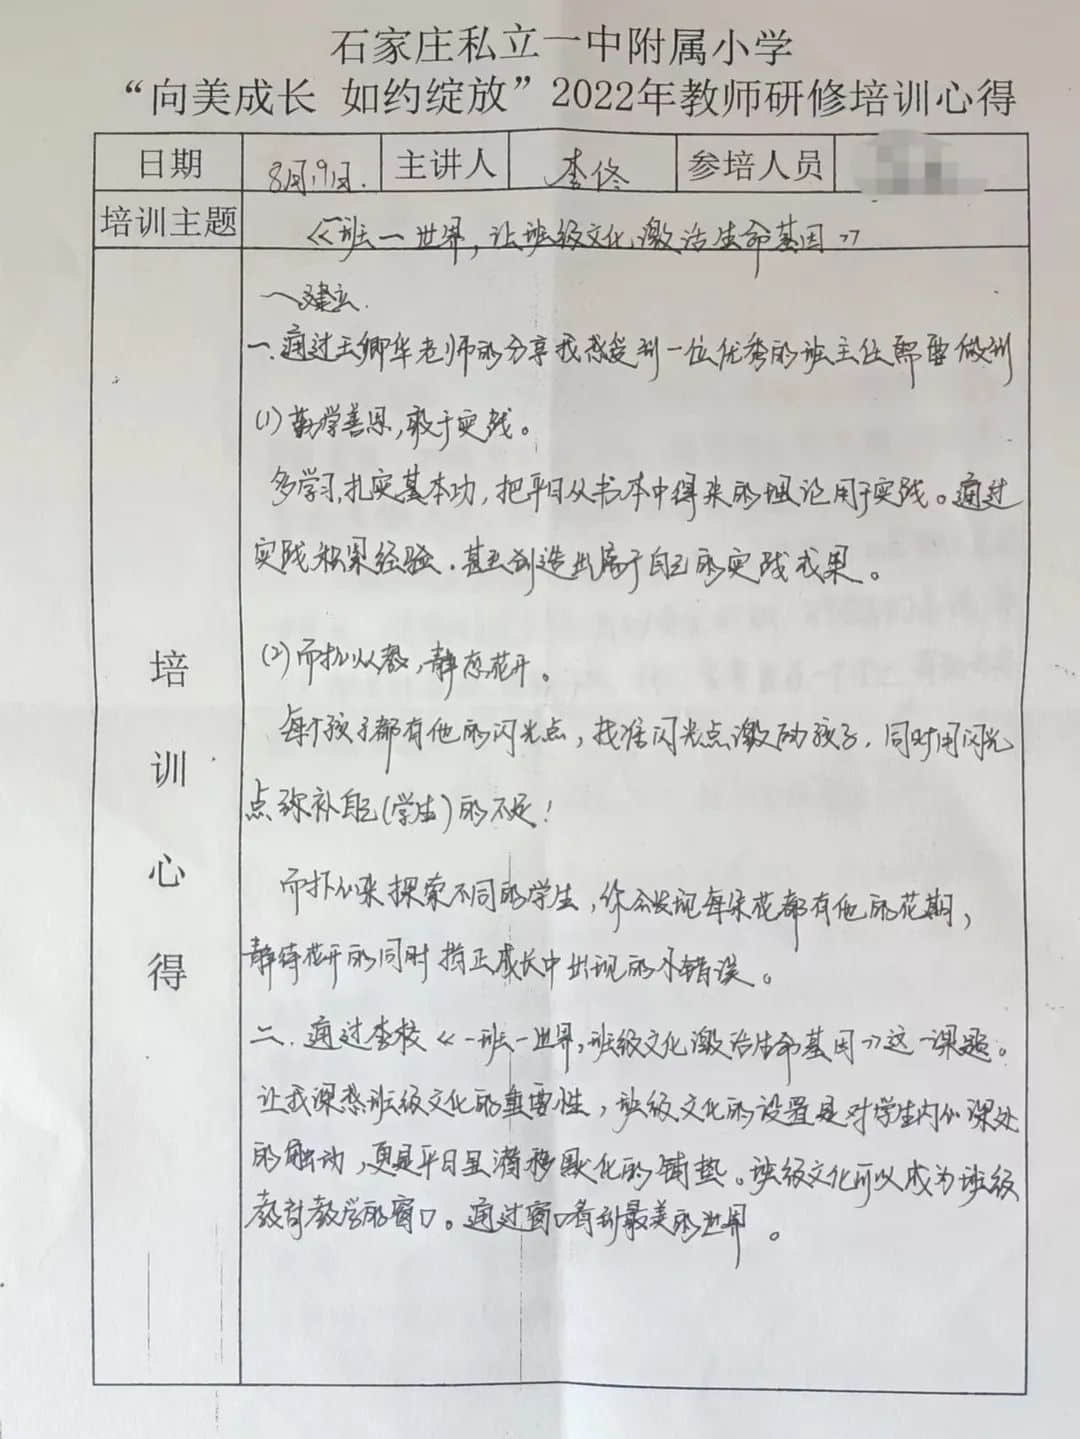 石家庄私立一中附属小学
“向美成长 如约绽放”2022年教师研修培训心得
日期 8月19日. 主讲人 李佟 参培人员
培训主题 《一班一世界，让班级文化激活生命基因》
培训心得
一.通过王卿华老师的分享我感受到一位优秀的班主任需要做到
(1)勤学善思,敢于实践。
多学习,扎实基本功,把平日从书本中得来的理论用于实践。通过
实践积累经验.甚至创造出属于自己的实践成果。
(2)而扑从教,静态花开。
每个孩子都有他的闪光点,找准闪光点激励孩子.同时用闪光
点弥补自己(学生)的不足!
而扑心来探索不同的学生,你会发现每朵花都有他的花期,
静待花开的同时指正成长中出现的小错误。
二.通过李校《一班一世界,班级文化激活生命基因》这一课题。
让我深感班级文化的重要性,班级文化的设置是对学生内心深处
的触动,更是平日里潜移默化的铺垫。班级文化可以成为班级
教育教学的窗口。通过窗口看到最美的世界。